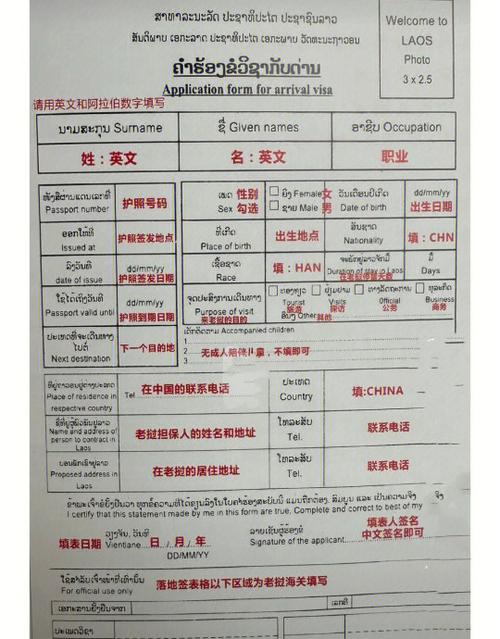 ສາທາລະນະລັດ ປະຊາທິປະໄຕ ປະຊາຊົນລາວ
ສັນຕິພາບ ເອກະລາດ ປະຊາທິປະໄຕ ເອກະພາບ ວັດທະນະຖາວອນ
Welcome to
LAOS
Photo
3 x 2.5
ຄຳຮ້ອງຂໍວິຊາກັບດ່ານ
Application form for arrival visa
请用英文和阿拉伯数字填写
ນາມສະກຸນ Surname
ຊື່ Given names
ອາຊີບ Occupation
姓：英文
名：英文
职业
ໜັງສືຜ່ານແດນເລກທີ
Passport number
护照号码
ເພດ 性别
Sex 勾选
ຍິງ Female 女
ຊາຍ Male 男
ວັນເດືອນປີເກີດ
Date of birth
dd/mm/yy
出生日期
ອອກໃຫ້ທີ່
Issued at
护照签发地点
ທີ່ເກີດ
Place of birth
出生地点
ສັນຊາດ
Nationality
填：CHN
ລົງວັນທີ
date of issue
dd/mm/yy
护照签发日期
ເຊື້ອຊາດ
Race
填：HAN
Duration of stay in Laos
在老挝停留天数
ມື້
Days
ໃຊ້ໄດ້ເຖິງວັນທີ
Passport valid until
dd/mm/yy
护照到期日期
ຈຸດປະສົງການເດີນທາງ
Purpose of visit
来老挝的目的
ທ່ອງທ່ຽວ
Tourist
旅游
ຢ້ຽມຢາມ
Visits
探访
ທາງລັດຖະການ
Official
公务
ທຸລະກິດ
Business
商务
ອື່ນໆ Other 其他
ປະເທດທີ່ຈະເດີນທາງ
ໄປຕໍ່
Next destination
下一个目的地
ເດັກຕິດຕາມ Accompanied children
1
2 无成人陪伴儿童，不填即可
3
ທີ່ຢູ່ຖາວອນຢູ່ຕ່າງປະເທດ
Place of residence in
respective country
Tel
在中国的联系电话
ປະເທດ
Country
填:CHINA
Name and address of
person to contract in
Laos
老挝担保人的姓名和地址
ໂທລະສັບ
Tel.
联系电话
ບ່ອນພັກເຊົາຢູ່ລາວ
Proposed address in
Laos
在老挝的居住地址
ໂທລະສັບ
Tel.
联系电话
ຂ້າພະເຈົ້າຂໍຢັ້ງຢືນວ່າ ທຸກຂໍ້ຄວາມທີ່ຂຽນລົງໃນໃບຄຳຮ້ອງສະບັບນີ້ ແມ່ນຖືກຕ້ອງ, ສົມບູນ ແລະ ເປັນຄວາມຈິງ
I certify that this statement made by me in this form are true, Complete and correct to best of my
填表日期
ວຽງຈັນ, ວັນທີ
Vientiane 日 / 月 / 年
DD/MM/YY
ລາຍເຊັນຜູ້ຮ້ອງຂໍ
Signature of the applicant
填表人签名
中文签名即可
ໃຊ້ສຳລັບເຈົ້າໜ້າທີ່ເທົ່ານັ້ນ
For official use only
落地签表格以下区域为老挝海关填写
ເອກະສານຢັ້ງຢືນຈາກ
ເລກທີ
ປະເພດວີຊາ